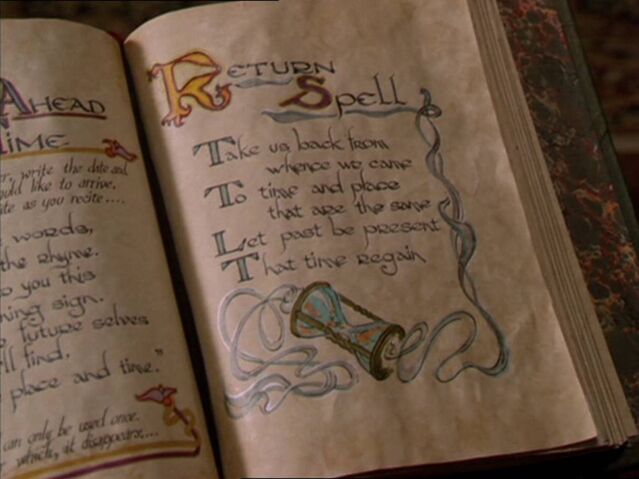 Ahead
Time
write the date and
would like to arrive.
as you recite....
words,
the rhyme.
you this
sign.
future selves
find,
place and time."
can only be used once.
which, it disappears....
Return
Spell
Take us back from
whence we came
To time and place
that are the same
Let past be present
That time regain